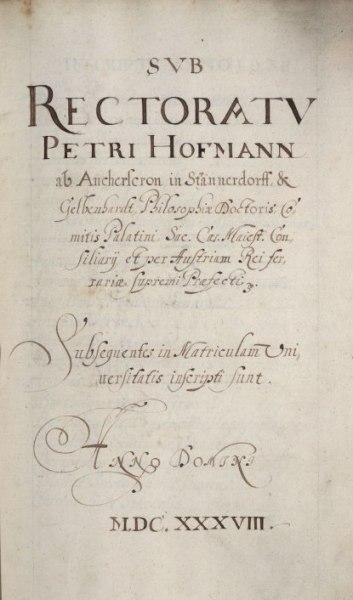 SVB
RECTORATV
PETRI HOFMANN
ab Ancherscron in Stännerdorff. &
Gelbenhardt, Philosophiæ Doctoris, Co
mitis Palatini Sac. Cæs. Maiest. Con
siliarij et per Austriam Rei fer,
rariæ supremi Præfecti
Subsequentes in Matriculam Uni,
uersitatis inscripti sunt.
ANNO DOMINI
M.DC.XXXVIII.